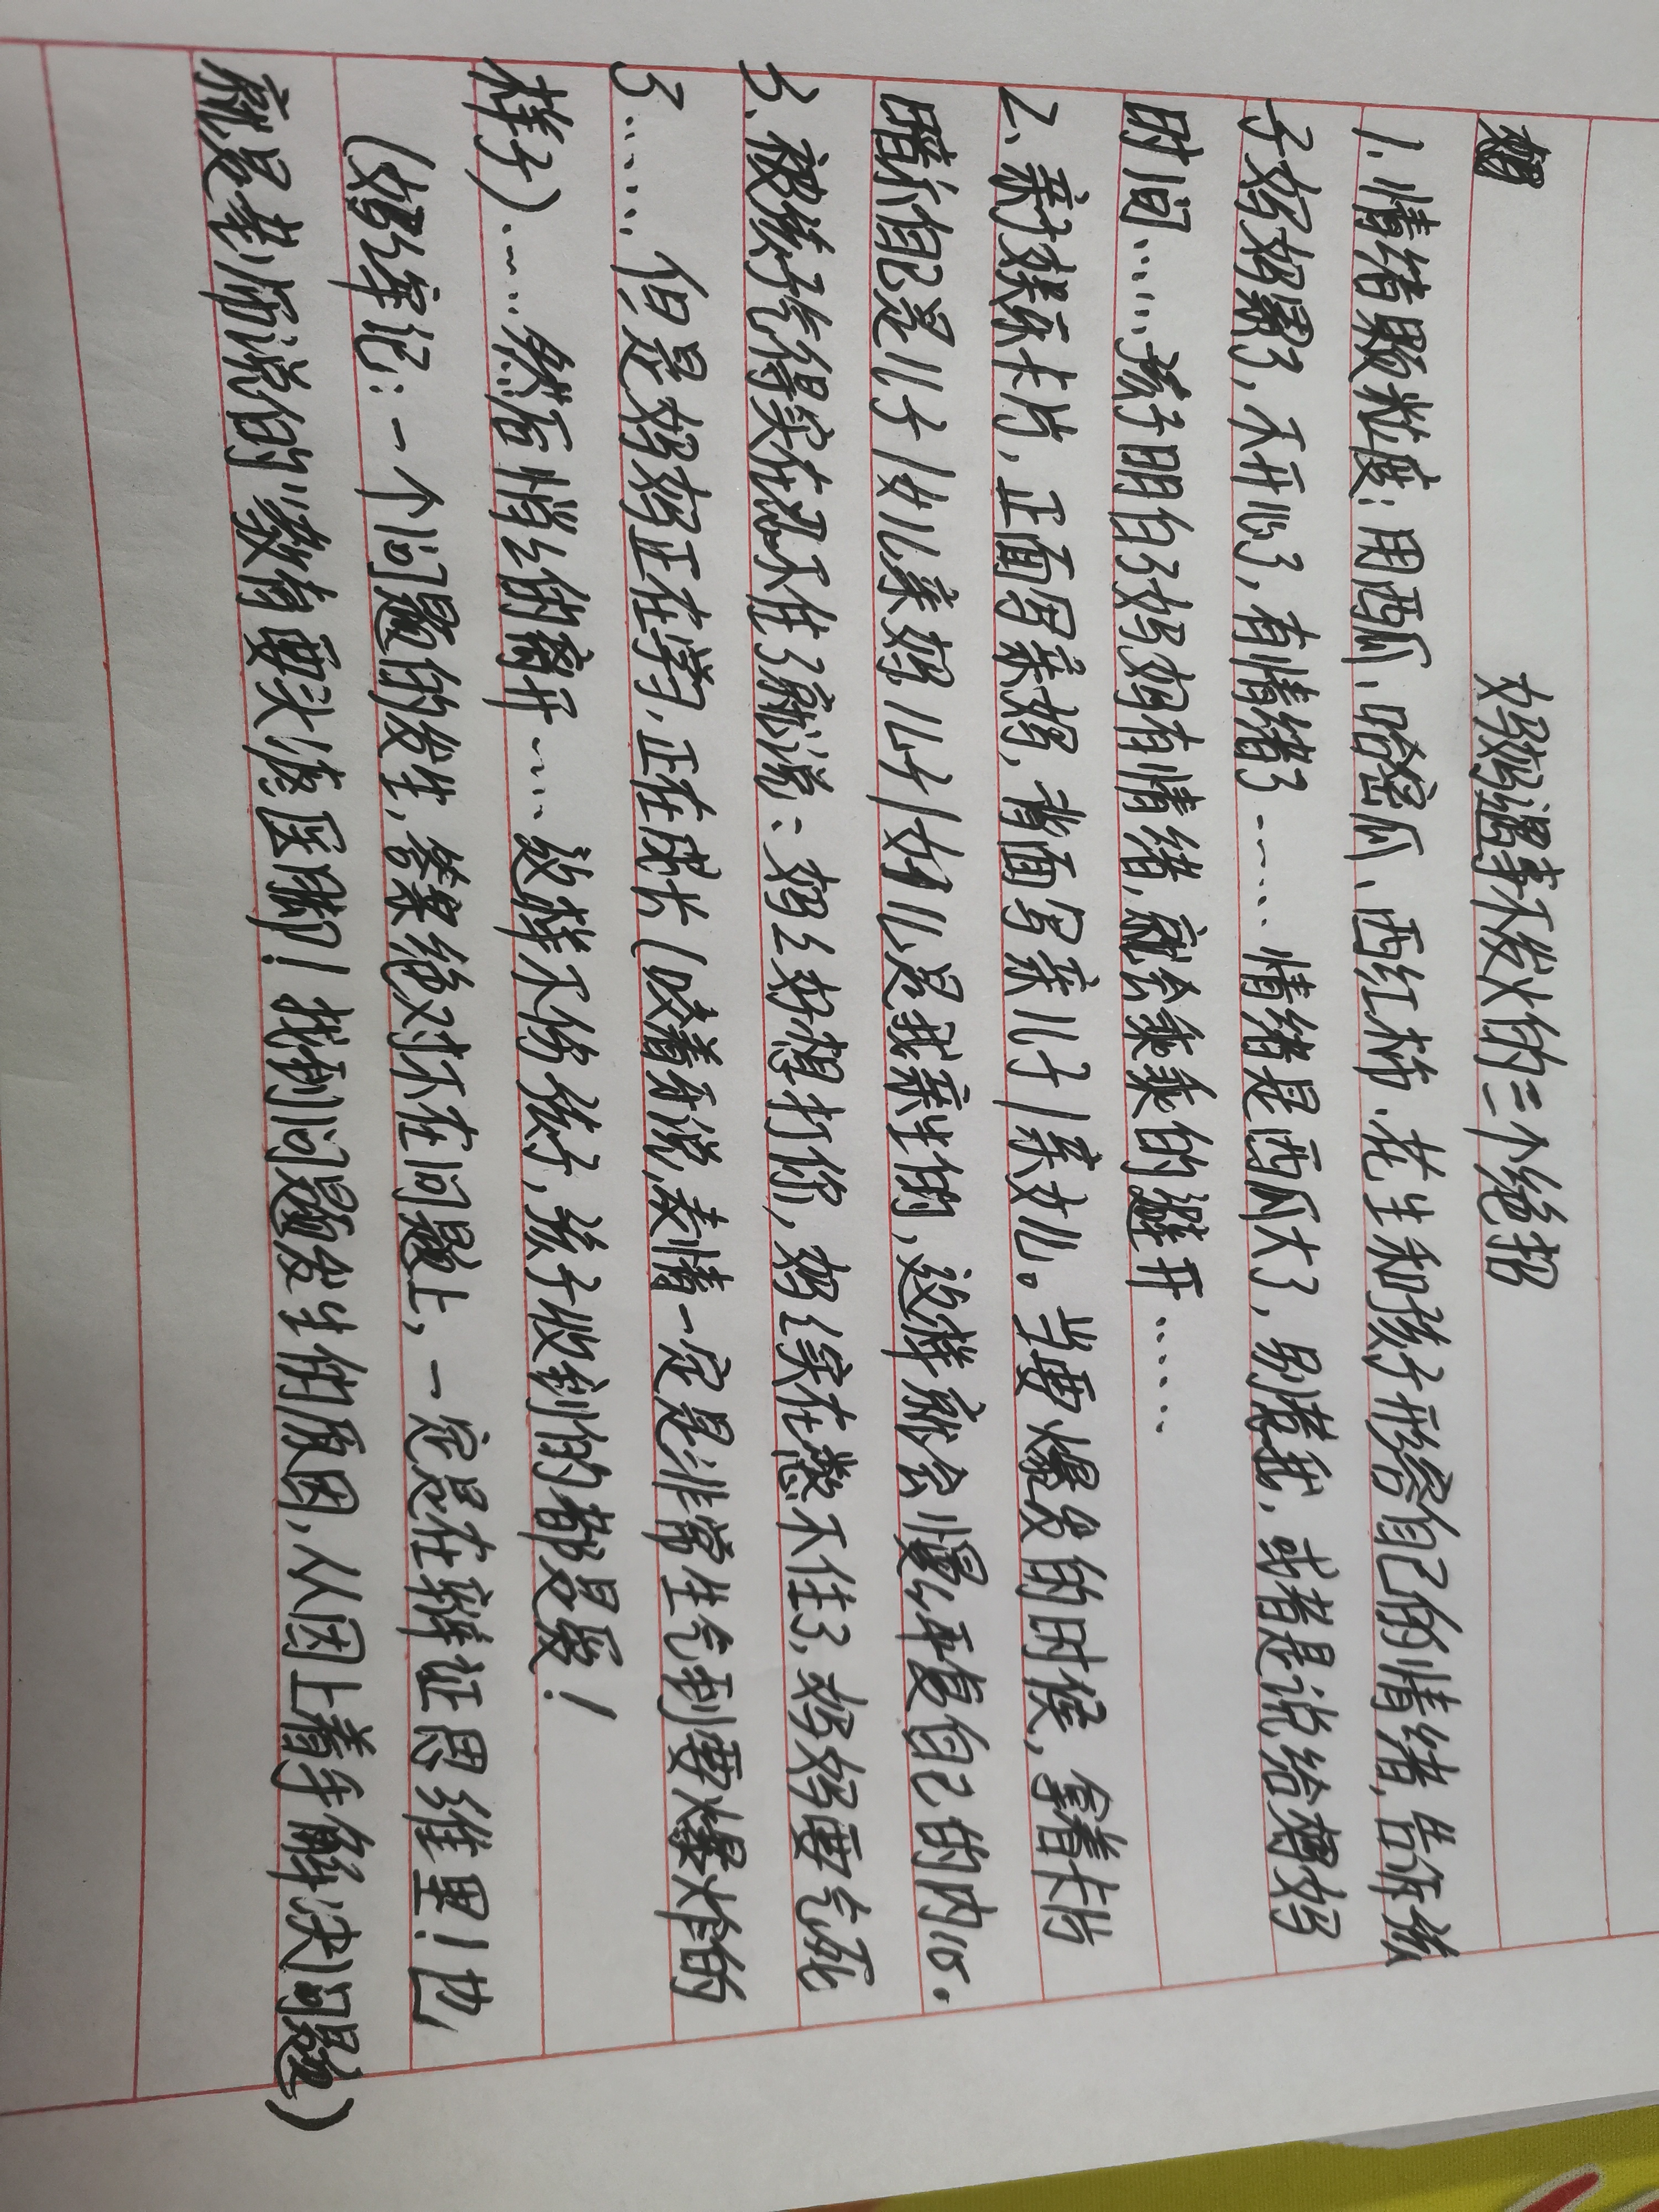 好妈妈遇事不发火的三个绝招
1、情绪颗粒度：用西瓜、哈密瓜、西红柿、花生和孩子形容自己的情绪，告诉孩
子妈妈累了，不开心了，有情绪了……情绪是西瓜大了，别惹我，或者是说给妈妈
时间……孩子明白了妈妈有情绪，就会乘乘的避开……
2、亲子娱乐卡片，正面写亲妈，背面写亲儿子/亲女儿。当要爆发的时候，拿着卡片
暗示自己是儿子/女儿亲妈，儿子/女儿是我亲生的，这样就会慢慢平复自己的内心。
3、被孩子气得实在忍不住了就说：妈妈好想打你，妈妈实在憋不住了，妈妈要气死
了……但是妈妈正在学习，正在成长（咬着牙说，表情一定是非常生气到要爆炸的
样子）……然后悄悄的离开……这样不伤孩子，孩子收到的都是爱！
（好好牢记：一个问题的发生，答案绝对不在问题上，一定是在辩证思维里！也
就是老师说的“教育要头疼医脚”！找到问题发生的原因，从因上着手解决问题）